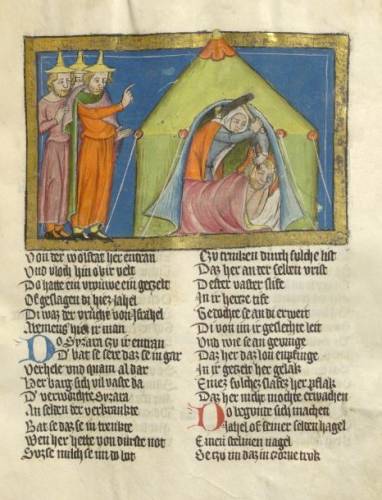 Von der wolstat her entran
Vnd vloch hin vbir velt
Do hatte ein vrouwe ein gezelt
Of geslagen di hiez Jahel
Di waz der vrucht von Israhel
Do Sysara zv ir entran
D' bat se sere daz se in gar
Verhele vnd quam al dar
Her barg sich vil vaste da
D' verwachte Sysara
An selden der verkrankte
Bat se daz se in trenkte
Wen her hette von durste not
Suze milch se im do bot
Czv trinken durch solche list
Daz her an der selben vrist
Dester vaster slife
In ir herze tife
Gedochte se an di erweit
Di von im ir geslechte leit
Vnd wie se an gevinge
Daz her daz lon enpfinge
In ir gezelt her gelak
Eines slafes her pflak
Daz her nicht mochte erwachen
Do begunde sich machen
Jahel of seiner selden hagel
Einen nagel
Se zv im daz in trok